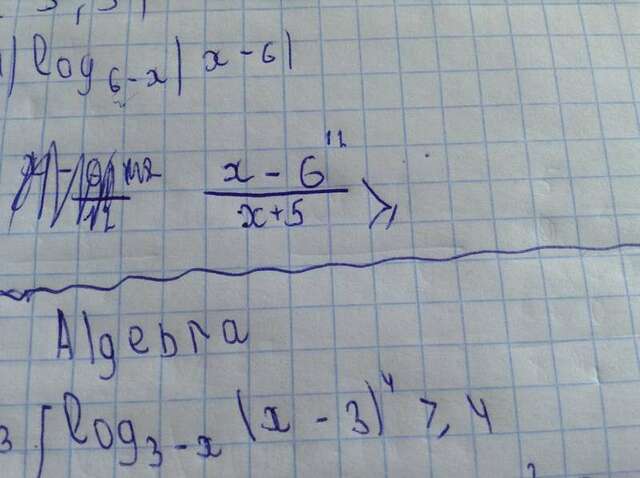 log_{6-x} |x-6|
\frac{x-6^{12}}{x+5} ≥
Algebra
log_{3-x} (x-3)^4 ≥ 4